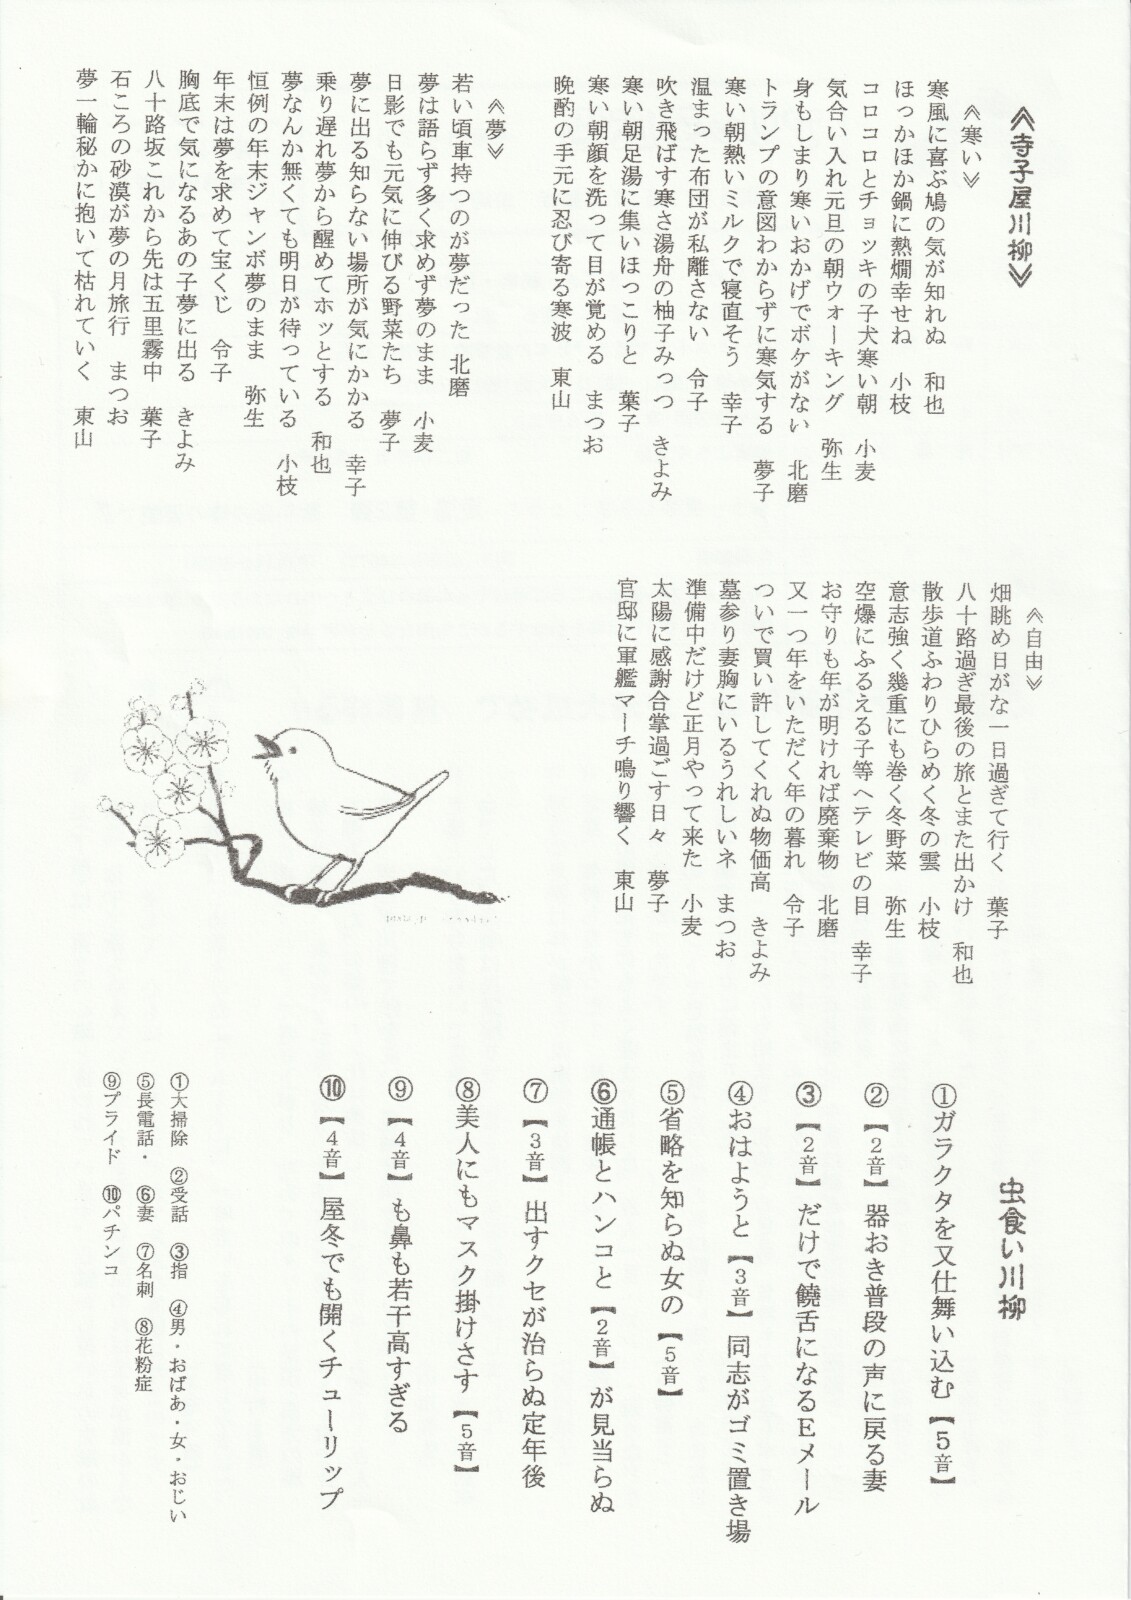 ≪寺子屋川柳≫
≪寒い≫
寒風に喜ぶ鳩の気が知れぬ 和也
ほっかほか鍋に熱燗幸せね 小枝
コロコロとチョッキの子犬寒い朝 小麦
気合い入れ元旦の朝ウォーキング 弥生
身もしまり寒いおかげでボケがない 北磨
トランプの意図わからずに寒気する 夢子
寒い朝熱いミルクで寝直そう 幸子
温まった布団が私離さない 令子
吹き飛ばす寒さ湯舟の柚子みっつ きよみ
寒い朝足湯に集いほっこりと 葉子
寒い朝顔を洗って目が覚める まつお
晩酌の手元に忍び寄る寒波 東山
≪夢≫
若い頃車持つのが夢だった 北磨
夢は語らず多く求めず夢のまま 小麦
日影でも元気に伸びる野菜たち 夢子
夢に出る知らない場所が気にかかる 幸子
乗り遅れ夢から醒めてホッとする 和也
夢なんか無くても明日が待っている 小枝
恒例の年末ジャンボ夢のまま 弥生
年末は夢を求めて宝くじ 令子
胸底で気になるあの子夢に出る きよみ
八十路坂これから先は五里霧中 葉子
石ころの砂漠が夢の月旅行 まつお
夢一輪秘かに抱いて枯れていく 東山
≪自由≫
畑眺め日がな一日過ぎて行く 葉子
八十路過ぎ最後の旅とまた出かけ 和也
散歩道ふわりひらめく冬の雲 小枝
意志強く幾重にも巻く冬野菜 弥生
空爆にふるえる子等へテレビの目 幸子
お守りも年が明ければ廃棄物 北磨
又一つ年をいただく年の暮れ 令子
ついで買い許してくれぬ物価高 きよみ
墓参り妻胸にいるうれしいネ まつお
準備中だけど正月やって来た 小麦
太陽に感謝合掌過ごす日々 夢子
官邸に軍艦マーチ鳴り響く 東山
虫食い川柳
①ガラクタを又仕舞い込む【5音】
②【2音】器おき普段の声に戻る妻
③【2音】だけで饒舌になるEメール
④おはようと【3音】同志がゴミ置き場
⑤省略を知らぬ女の【5音】
⑥通帳とハンコと【2音】が見当らぬ
⑦【3音】出すクセが治らぬ定年後
⑧美人にもマスク掛けさす【5音】
⑨【4音】も鼻も若干高すぎる
⑩【4音】屋冬でも開くチューリップ
①大掃除 ②受話 ③指 ④男・おばあ・女・おじい
⑤長電話・ ⑥妻 ⑦名刺 ⑧花粉症
⑨プライド ⑩パチンコ